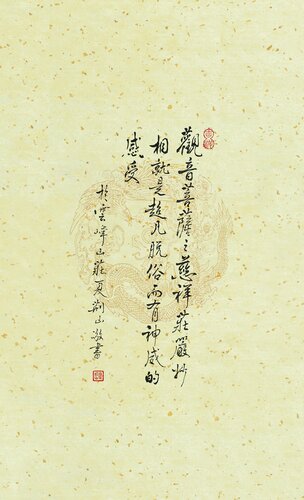 觀音菩薩之慈祥莊嚴妙
相就是超凡脱俗而有神威的
感受
於雲峰山莊夏荊山敬書